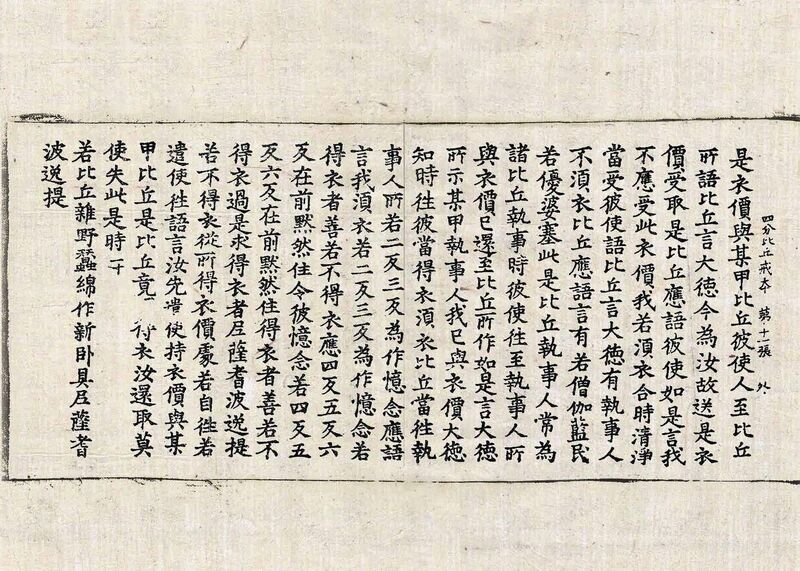 四分比丘戒本 第十一張 外
是衣價與某甲比丘彼使人至比丘
所語比丘言大德今為汝故送是衣
價受取是比丘應語彼使如是言我
不應受此衣價我若須衣合時清淨
當受彼使語比丘言大德有執事人
不須衣比丘應語言有若僧伽藍民
若優婆塞此是比丘執事人常為
諸比丘執事時彼使往至執事人所
與衣價已還至比丘所作如是言大德
所示某甲執事人我已與衣價大德
知時往彼當得衣須衣比丘當往執
事人所若二反三反為作憶念應語
言我須衣若二反三反為作憶念若
得衣者善若不得衣應四反五反六
反在前默然住令彼憶念若四反五
反六反在前默然住得衣者善若不
得衣過是求得衣者尼薩耆波逸提
若不得衣從所得衣價處若自往若
遣使往語言汝先遣使持衣價與某
甲比丘是比丘竟得衣汝還取莫
使失此是時十
若比丘雜野蠶綿作新臥具尼薩耆
波逸提